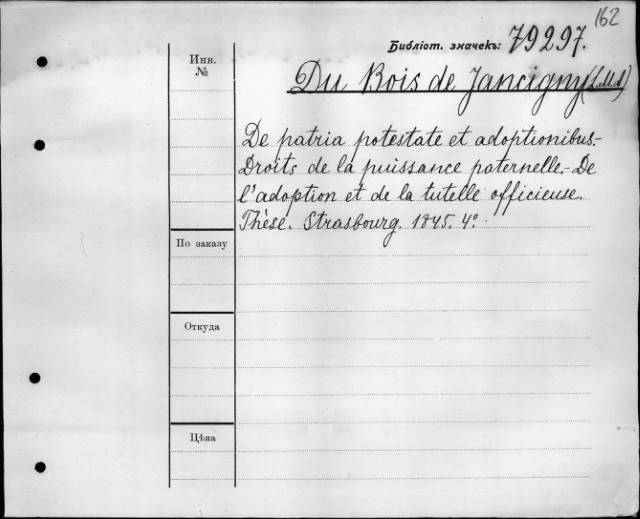 162
Библіот. значекъ: 79297.
Инв.
№
Du Bois de Jancigny (L.M.A)
De patria potestate et adoptionibus.-
Droits de la puissance paternelle.- De
l'adoption et de la tutelle officieuse.
Thèse. Strasbourg. 1845. 4º.
По заказу
Откуда
Цѣна